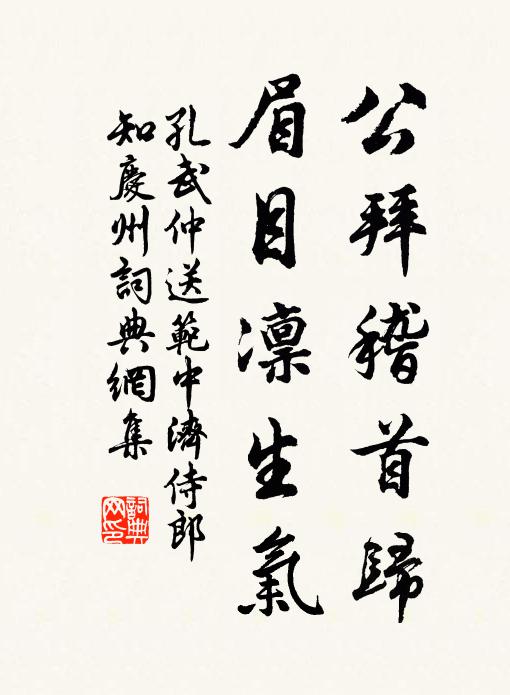 公拜稽首歸
眉目凛生氣
孔武仲送範中濟侍郎
知慶州詞典網集
詞典
网印